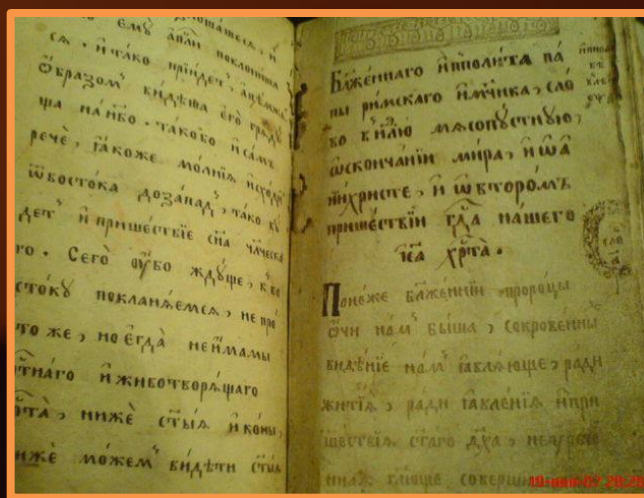 емъ̀ апⷭ҇ли поклониша
сѧ. и҆ тако прїидет̾,
ѡ҆бразом̾ видѣша его̀ градꙋ
ща на нб҃о. таково и҆ самъ
речѐ, ꙗ҆коже молнїѧ и҆сходи
ѿ востока до запад̾, тако бꙋ
дет̾ и҆ пришествїе сн҃а чл҃ческа
го. Сего̀ ᲂу҆бо ждꙋще, к̾ во
стокꙋ покланѧемсѧ, не про
то же, но є҆гда̀ не и҆мамы
и҆ животворѧщаго
нижѐ ст҃ыѧ и҆коны,
нижѐ можем̾ видѣти ст҃ыѧ
Бл҃женнаго и҆пполита па
пы римскаго и҆ мч҃ника, сло
во в̾ нⷣѣлю мѧсопꙋстнꙋю,
ѡ҆ скончанїи мира, и҆ ѡ҆ а҆
нтїхристе, и҆ ѡ҆ второмъ
пришествїи гдⷭ҇а нашего
і҆са хрⷭ҇та̀.
Понеже бл҃женнїи пророцы
ѻ҆чи нам̾ быша, сокровенны
видѣнїе нам̾ ꙗ҆влѧюще, ради
житїѧ̀, ради ꙗ҆вленїѧ и҆ при
шествїѧ ст҃аго дх҃а,
совершь